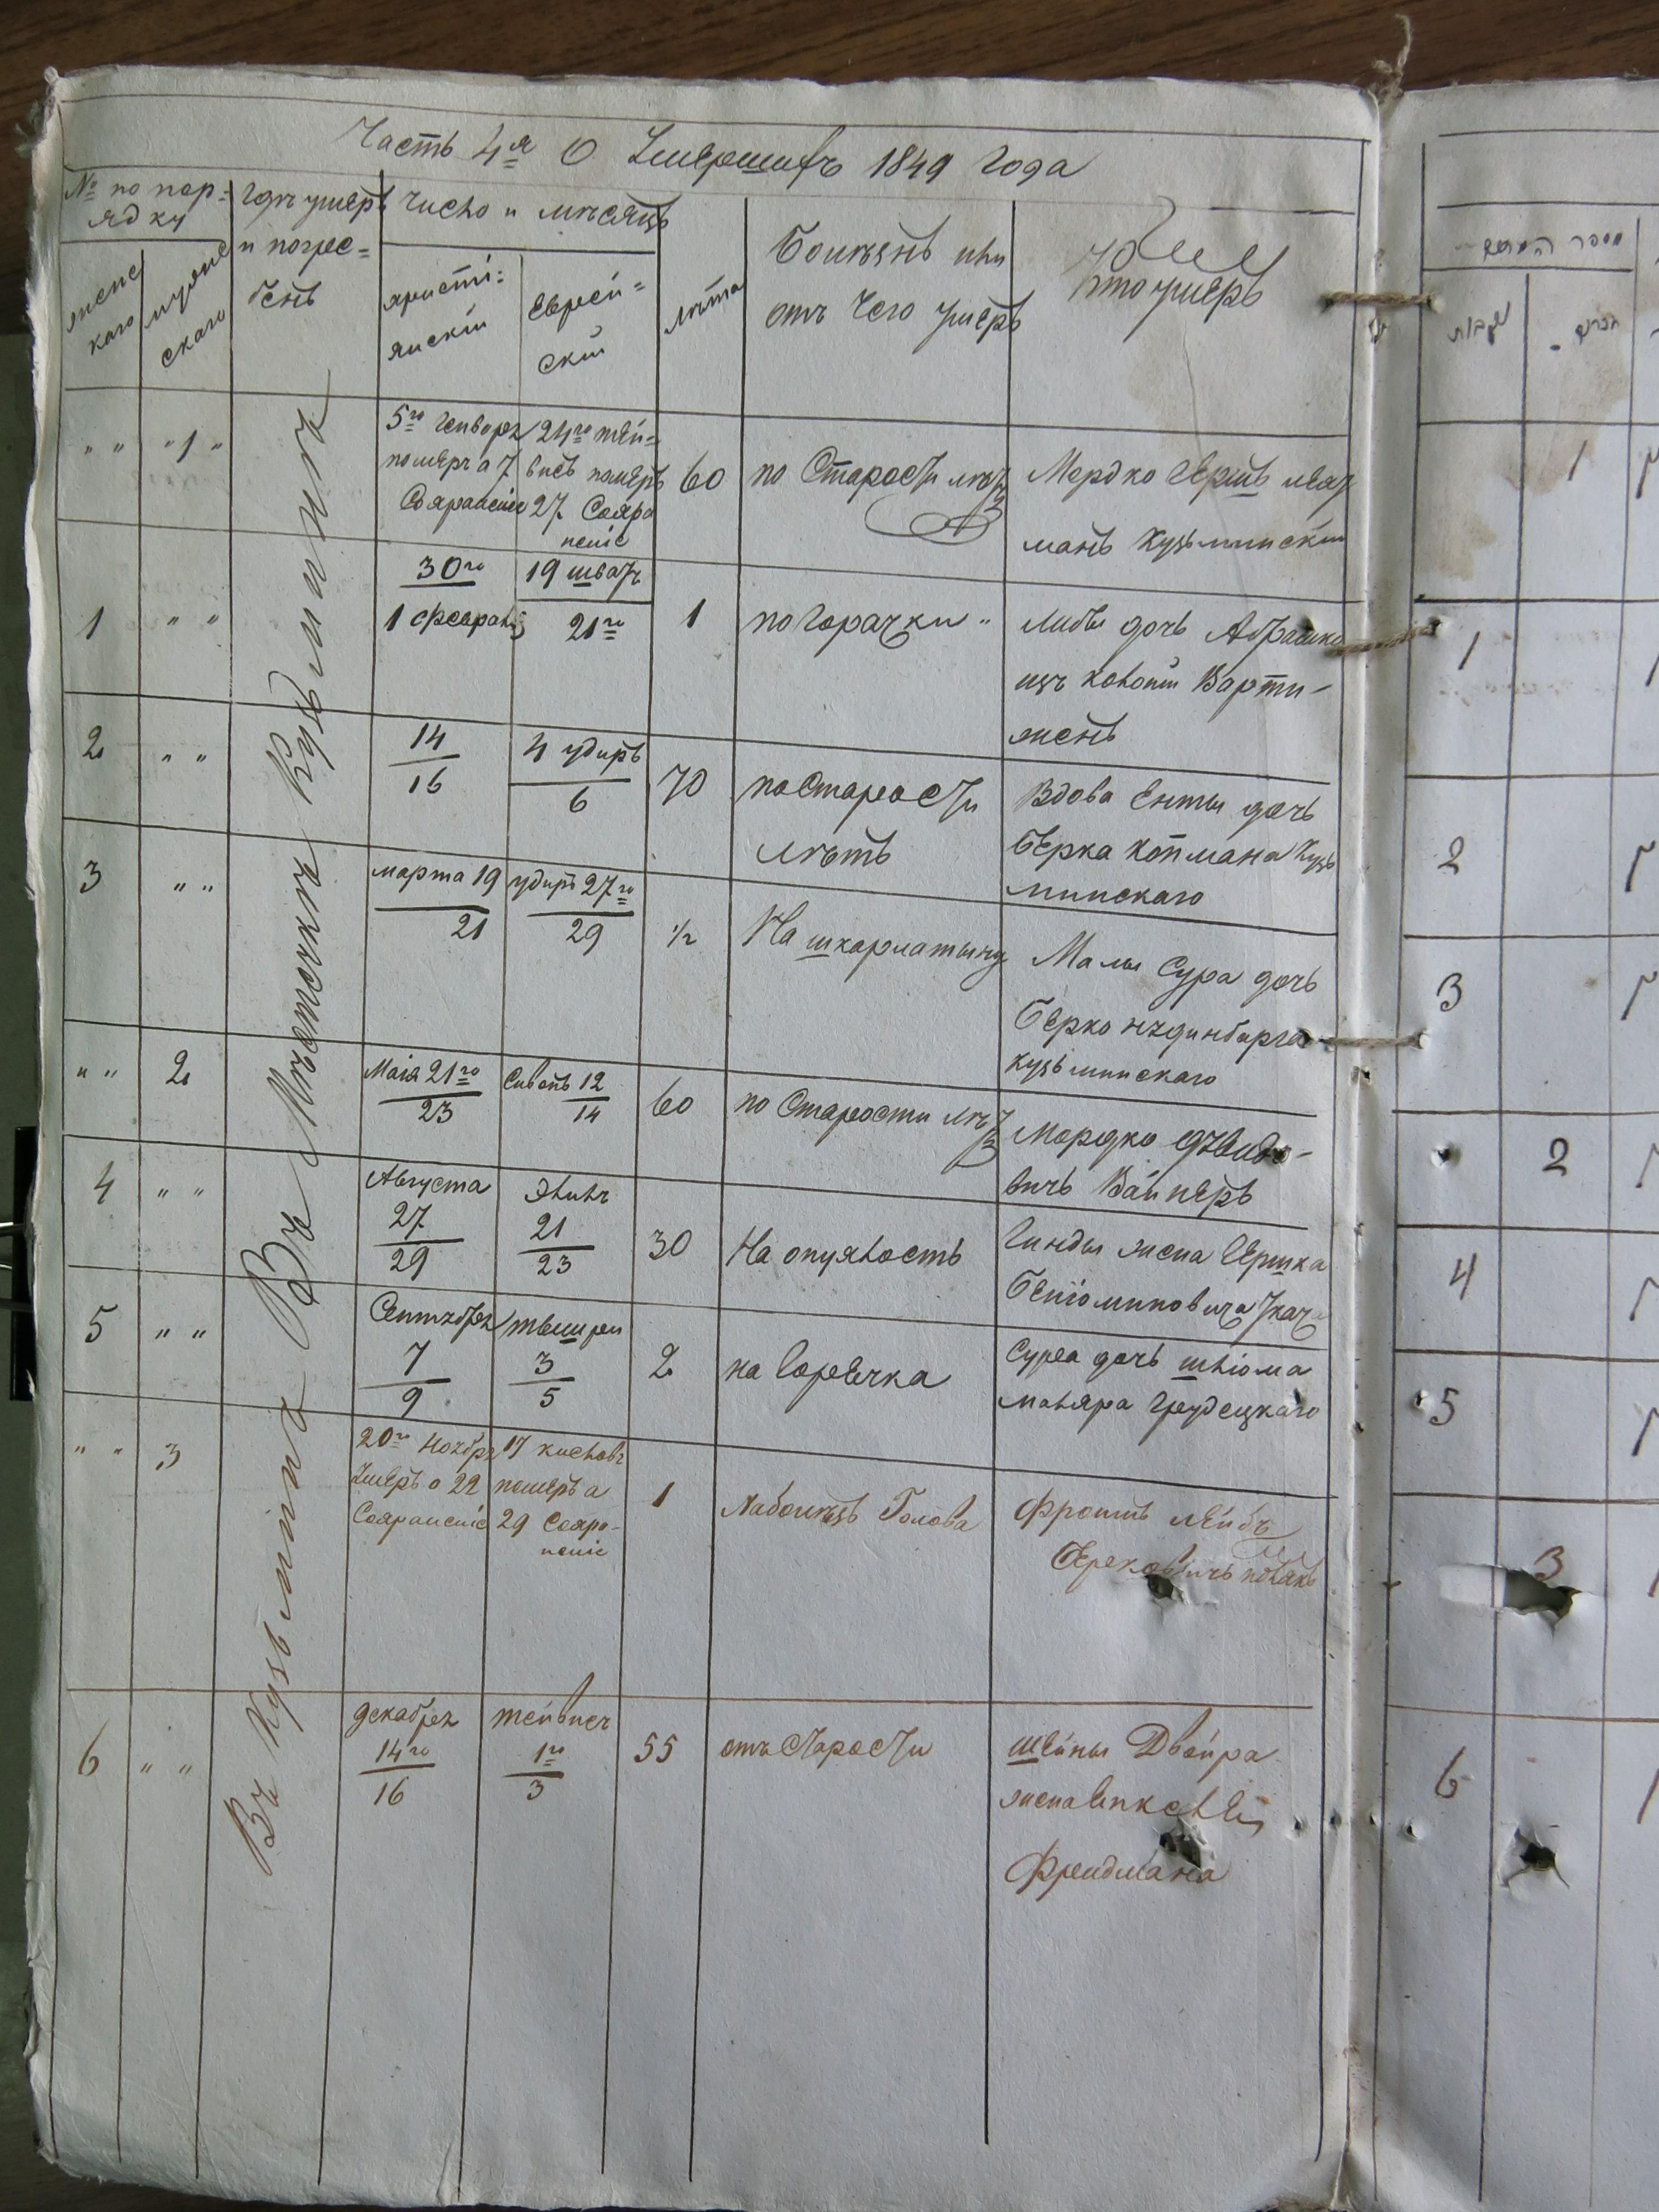 Часть 4я О Умершихъ 1849 Года
№ по пор=
ядку
женс
каго
мужес
скаго
Гдѣ умеръ
и погре=
бенъ
Число и мѣсяцъ
христі=
янскій
Еврей=
скій
лѣта
Болѣзнь или
отъ чего умеръ
Кто умеръ
" "
" 1 "
5го Генваря
померъ а 7
Сохраненіе
24го тей=
висъ померъ
27 Сохра
неніе
60
по Старости лѣтъ
Мордко Гершъ
манъ Кузьминскій
1
" "
30го
1 февраля
19 шватъ
21го
1
по Горачки "
Либы дочь Абрашка
изъ колоніи Варти-
женъ
2
" "
14
16
4 удиръ
6
70
по Старости
лѣтъ
Вдова Енты дочь
Берка Копмана Кузь
минскаго
3
" "
марта 19
21
удиръ 27го
29
1/2
На шкарлатыну
Малы Сура дочь
Берко
Кузьминскаго
" "
2
Маія 21го
23
Сивонъ 12
14
60
по Старости лѣтъ
Мордко
вичъ Вайнеръ
4
" "
Августа
27
29
Элилъ
21
23
30
На опухлость
Гинды жена Гершка
Бениоминовича Ткача
5
" "
Сентября
7
9
тышреи
3
5
2
на Горечка
Сура дочь шліома
маляра Грудецкаго
" "
3
20го Ноября
Умеръ о 22
Сохраненіе
17 кислевъ
померъ а
29 Сохра-
неніе
1
Голова
Фроимъ лейбъ
Берковичъ
6
" "
декабря
14го
16
тейвисъ
1го
3
55
отъ Старости
шейны Двойра
жена
Фреидмана
Въ Кузьмина Въ Мѣстечкѣ Кузьмина
מספר המתים
נקבות
זכרים
1
1
2
3
2
4
5
3
6